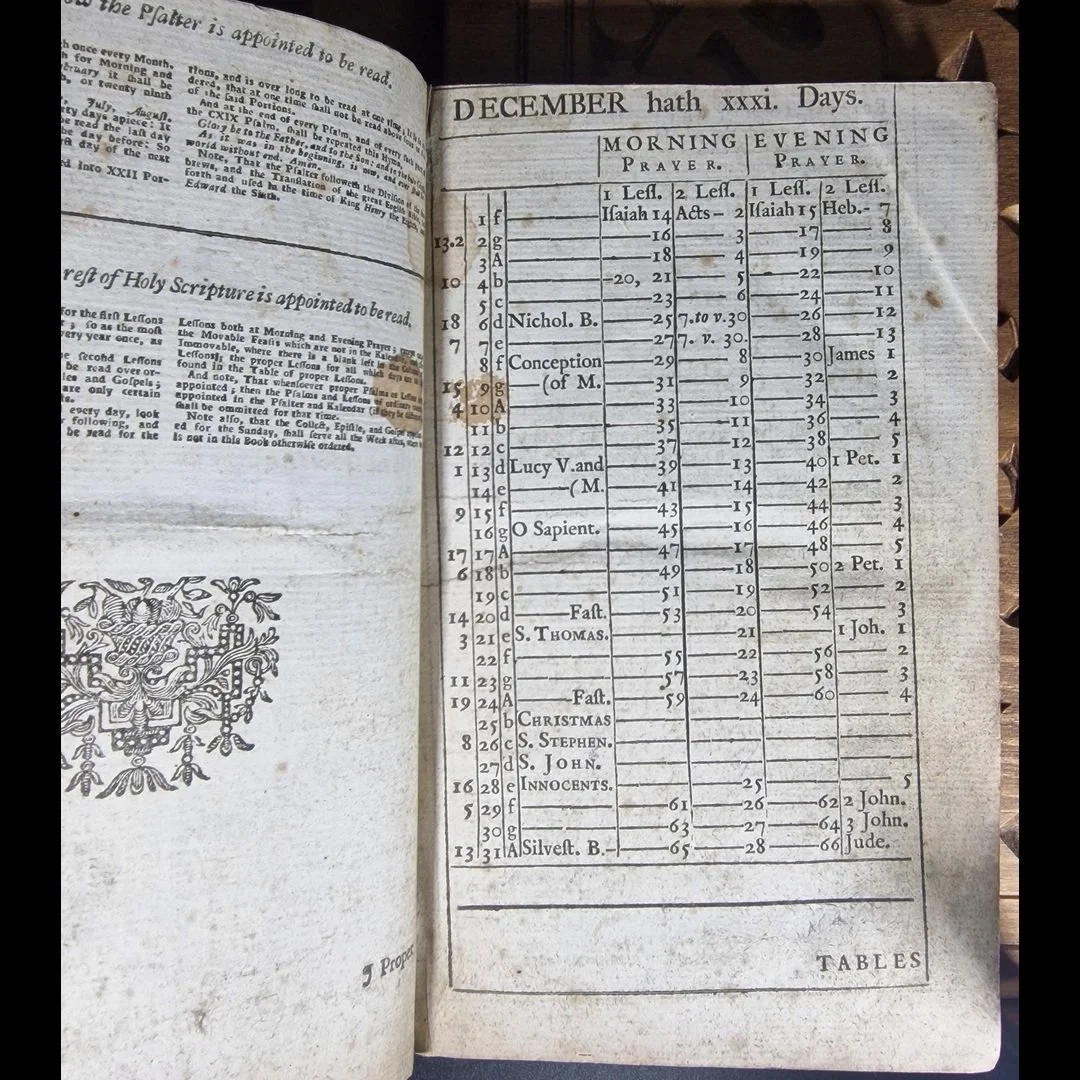 ow the Pſalter is appointed to be read.
h once every Month,
h for Morning and
bruary it ſhall be
h, or twenty ninth
July, Auguſt,
ty days apiece: It
be read the laſt day
he day before: So
ſt day of the next
ed into XXII Por-
tions, and is over long to be read at one time;
dered, that at one time ſhall not be read above
of the ſaid Portions.
And at the end of every Pſalm, and of every ſuch
the CXIX Pſalm, ſhall be repeated this Hymn,
Glory be to the Father, and to the Son: and to the
As it was in the beginning, is now, and ever ſhall
world without end. Amen.
Note, That the Pſalter followeth the Diviſion of the
brews, and the Tranſlation of the great Engliſh
forth and uſed in the time of King Henry the Eighth,
Edward the Sixth.
reſt of Holy Scripture is appointed to be read.
for the firſt Leſſons
; ſo as the moſt
very year once, as
he ſecond Leſſons
be read over or-
les and Goſpels;
are only certain
ts.
every day, look
following, and
be read for the
Leſſons both at Morning and Evening Prayer;
the Movable Feaſts which are not in the
Immovable, where there is a blank left in the
Leſſons; the proper Leſſons for all which days are
found in the Table of proper Leſſons.
And note, That whenſoever proper Pſalms or Leſſons
appointed; then the Pſalms and Leſſons of ordinary
appointed in the Pſalter and Kalendar (if they be
ſhall be ommitted for that time.
Note alſo, that the Collect, Epiſtle, and Goſpel
ed for the Sunday, ſhall ſerve all the Week after,
is not in this Book otherwiſe ordered.
Proper
DECEMBER hath xxxi. Days.
MORNING PRAYER. EVENING PRAYER.
1 Leſſ. 2 Leſſ. 1 Leſſ. 2 Leſſ.
1 f Iſaiah 14 Acts - 2 Iſaiah 15 Heb. - 7
13.2 2 g 16 3 17 8
3 A 18 4 19 9
10 4 b 20, 21 5 22 10
5 c 23 6 24 11
18 6 d Nichol. B. 25 7. to v. 30 26 12
7 7 e 27 7. v. 30. 28 13
8 f Conception 29 8 30 James 1
15 9 g (of M. 31 9 32 2
4 10 A 33 10 34 3
11 b 35 11 36 4
12 12 c 37 12 38 5
1 13 d Lucy V. and 39 13 40 1 Pet. 1
14 e (M. 41 14 42 2
9 15 f 43 15 44 3
16 g O Sapient. 45 16 46 4
17 17 A 47 17 48 5
6 18 b 49 18 50 2 Pet. 1
19 c 51 19 52 2
14 20 d Faſt. 53 20 54 3
3 21 e S. THOMAS. 21 1 Joh. 1
22 f 55 22 56 2
11 23 g 57 23 58 3
19 24 A Faſt. 59 24 60 4
25 b CHRISTMAS
8 26 c S. STEPHEN.
27 d S. JOHN.
16 28 e INNOCENTS. 25 5
5 29 f 61 26 62 2 John.
30 g 63 27 64 3 John.
13 31 A Silveſt. B. 65 28 66 Jude.
TABLES